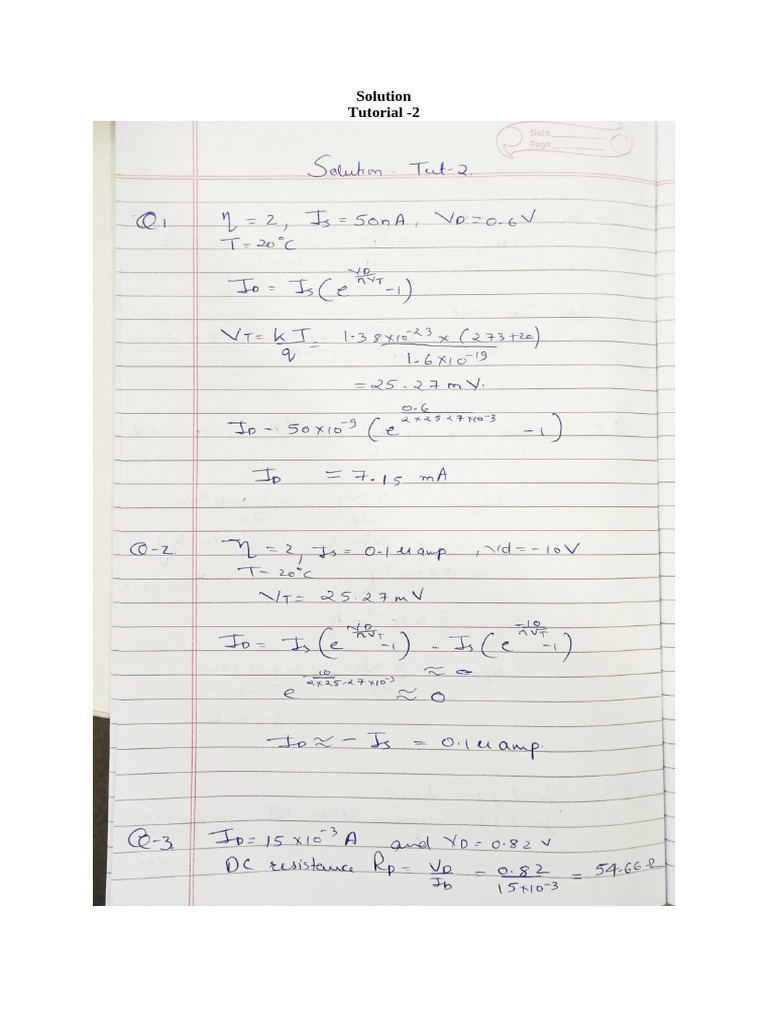 Solution
Tutorial -2
Date
Page
Solution. Tut-2.
Q1 η = 2, Is = 50nA, VD = 0.6V
T = 20°C
ID = Is(e^(VD/ηVT) -1)
VT = kT/q = 1.38×10^-23 × (273+20) / 1.6×10^-19
= 25.27 mV.
ID - 50×10^-9 (e^(0.6/2×25.27×10^-3) -1)
ID = 7.15 mA
Q-2. η = 2, Is = 0.1 μamp, Vd = -10V
T = 20°C
VT = 25.27mV
ID = Is(e^(VD/ηVT) -1) - Is(e^(-10/ηVT) -1)
≈ 0
e^(10/2×25.27×10^-3) ≈ 0
ID ≈ - Is = 0.1 μamp.
Q-3. ID = 15×10^-3 A and VD = 0.82 V
DC resistance RD = VD/ID = 0.82/15×10^-3 = 54.66 Ω